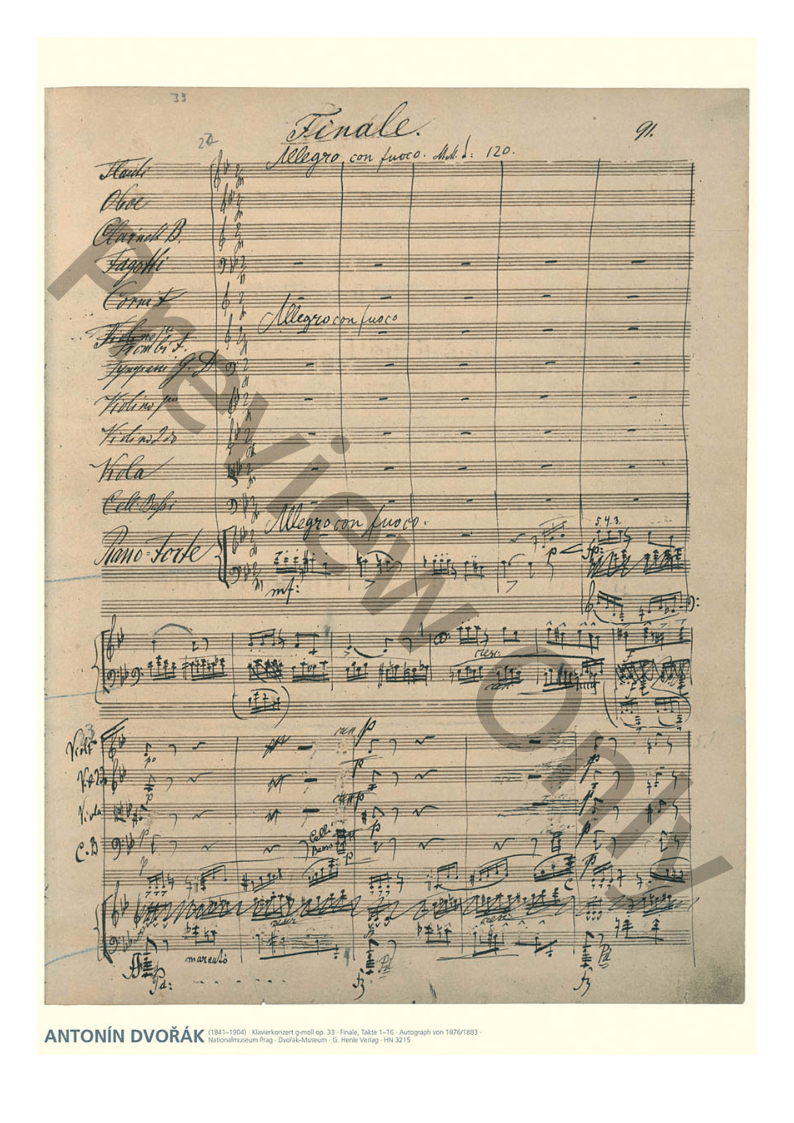 39
24
Finale.
91.
Allegro con fuoco. M.M. 120.
Flauti
Oboe
Clarinetti B.
Fagotti
Corni F
Allegro con fuoco
Trombi F.
Tympani G. D
Violino Imo
Violino 2do
Viola
Celli Bassi
Allegro con fuoco.
Piano-Forte
mf:
p
5.4.3.
fp:
cresc.
cresc.
Viola
C. B
p
p
p
Celli
Bassi
p
marcato
Pd:
fz
Pd
fz
Pd
Preview Only
ANTONÍN DVOŘÁK
(1841–1904) · Klavierkonzert g-moll op. 33 · Finale, Takte 1–16 · Autograph von 1876/1883 ·
Nationalmuseum Prag · Dvořák-Museum · G. Henle Verlag · HN 3215